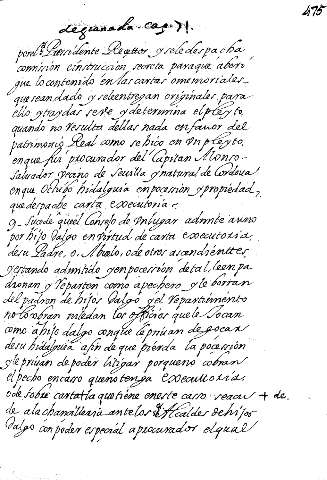 475
de granada. Cap. 71.
por el Sr. Presidente Rexttor, y sele despacha
comission e instruccion secreta para que abori
que lo contenido en las cartas o memoriales
que se an dado, y sele entregan originales, para
ello, y traydas se ve, y determina el pleyto,
quando no resulta dellas nada en fauor del
patrimonio Real como se hico en vn pleyto,
en que fui procurador del Capitan Alonso
saluador vecino de Seuilla y natural de Cordoua
en que obtubo hidalguia en posession, y propiedad,
que despache carta executoria.
9 - Sucede que el Consejo de vn lugar admite a uno
por hijo dalgo en virtud de carta executoria,
de su Padre, o Abuelo, o de otros ascendientes,
y estando admitido y en posession de tal, le en pa
dronan y reparten como a pechero, y le borran
del padron de hijos dalgo y el repartimiento
no lo cobran
los officios que le tocan
como a hijo dalgo con que le priuan de gocar
de su hidalguia a fin de que pierda la posession
y le priuan de poder litigar porque no cobran
el pecho en casso que no tenga executoria
o de sobre carta la que tiene en este caso se acu + de.
de a la chancilleria ante los Alcaldes de hijos
dalgo con poder especial a procurador el qual